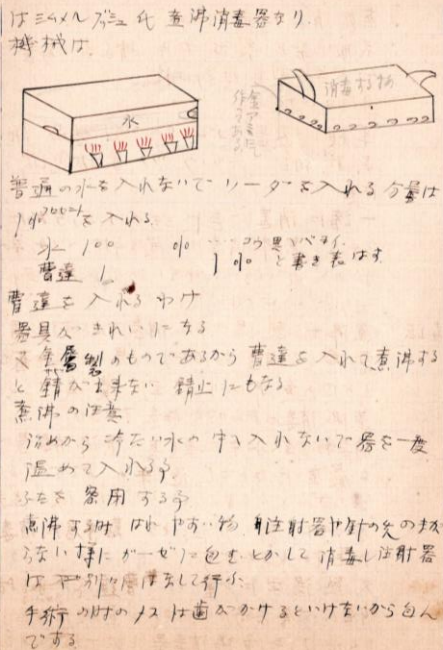 はシムメルブッシュ氏 煮沸消毒器なり
機械は
水
消毒するもの
普通の水を入れないでソーダを入れる 分量は
1%を入れる
水 100 %
曹達 1 1% と書き表はす
曹達を入れるわけ
器具がきれいになる
金属製のものであるから曹達を入れて煮沸する
と錆が出来ない 錆止にもなる
煮沸の注意
始めから冷たい水の中に入れないで器を一度
温めて入れる事
ふたを 用する事
煮沸する時はれやすい物 注射器や針の先のまがらない様にガーゼに包むとかして消毒し注射器
は 別々に離して行ふ
手術の時のメスは歯がかけるといけないから包ん
でする